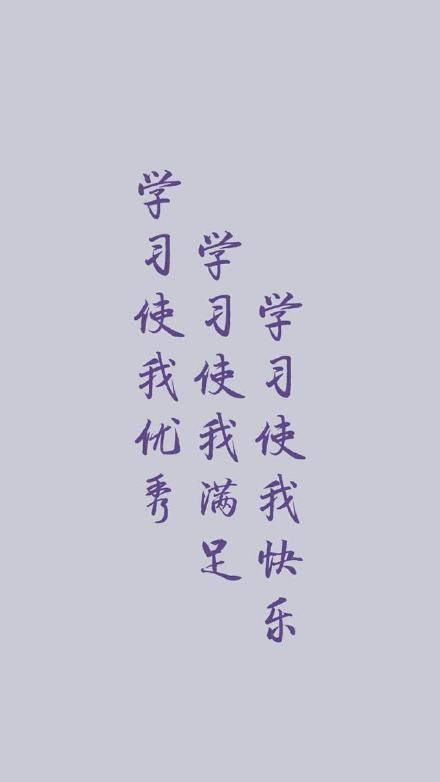 学习使我优秀
学习使我满足
学习使我快乐